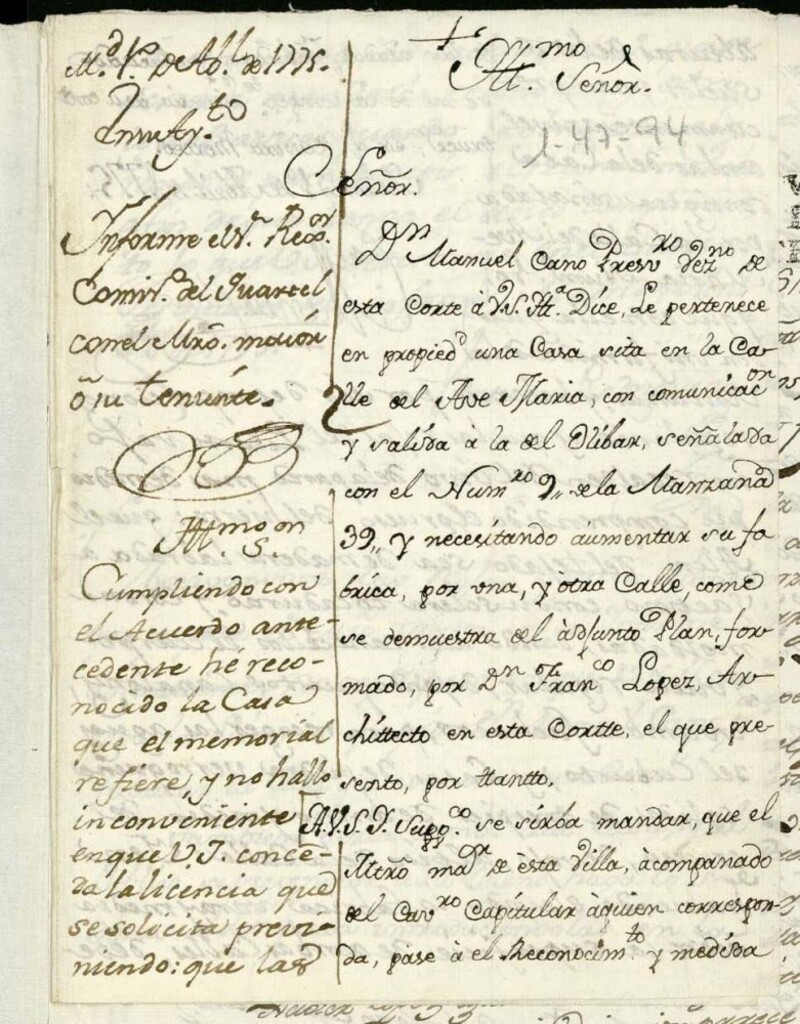 M.d 1.º de Ab.l de 1775.
En su Ay.to
Informe el S.r Rexor.
Comis.º del Quartel
con el Mrõ. maior
õ su teniente.
Ill.mo S.on
Cumpliendo con
el Acuerdo ante-
cedente hé reco-
nocido la Casa
que el memorial
refiere, y no hallo
inconveniente
en que V.I. conce-
da la licencia que
se solocita previ-
niendo: que las
Ill.mo Señor.
1-47-94
Señor.
Dn Manuel Cano Presv.ro Vez.no de
esta Corte à V.S. Ill.a Dice, Le pertenece
en propied.d una Casa sita en la Ca-
lle del Ave Maria, con comunicac.on
y salida à la del Olibar, señalada
con el Num.ro 9,, de la Manzana
39,, y necesitando aumentar su fa-
brica, por una, y otra Calle, como
se demuestra del àdjunto Plan, for-
mado, por Dn Fran.co Lopez, Ar-
chittecto en esta Cortte, el que pre-
sento, por ttantto,
A.V.S.I. Supp.co se sirba mandar, que el
Mtrõ ma.or de èsta Villa, àcompanado
del Cav.ro Capitular àquien correspon-
da, pase à el Reconocim.to y medida